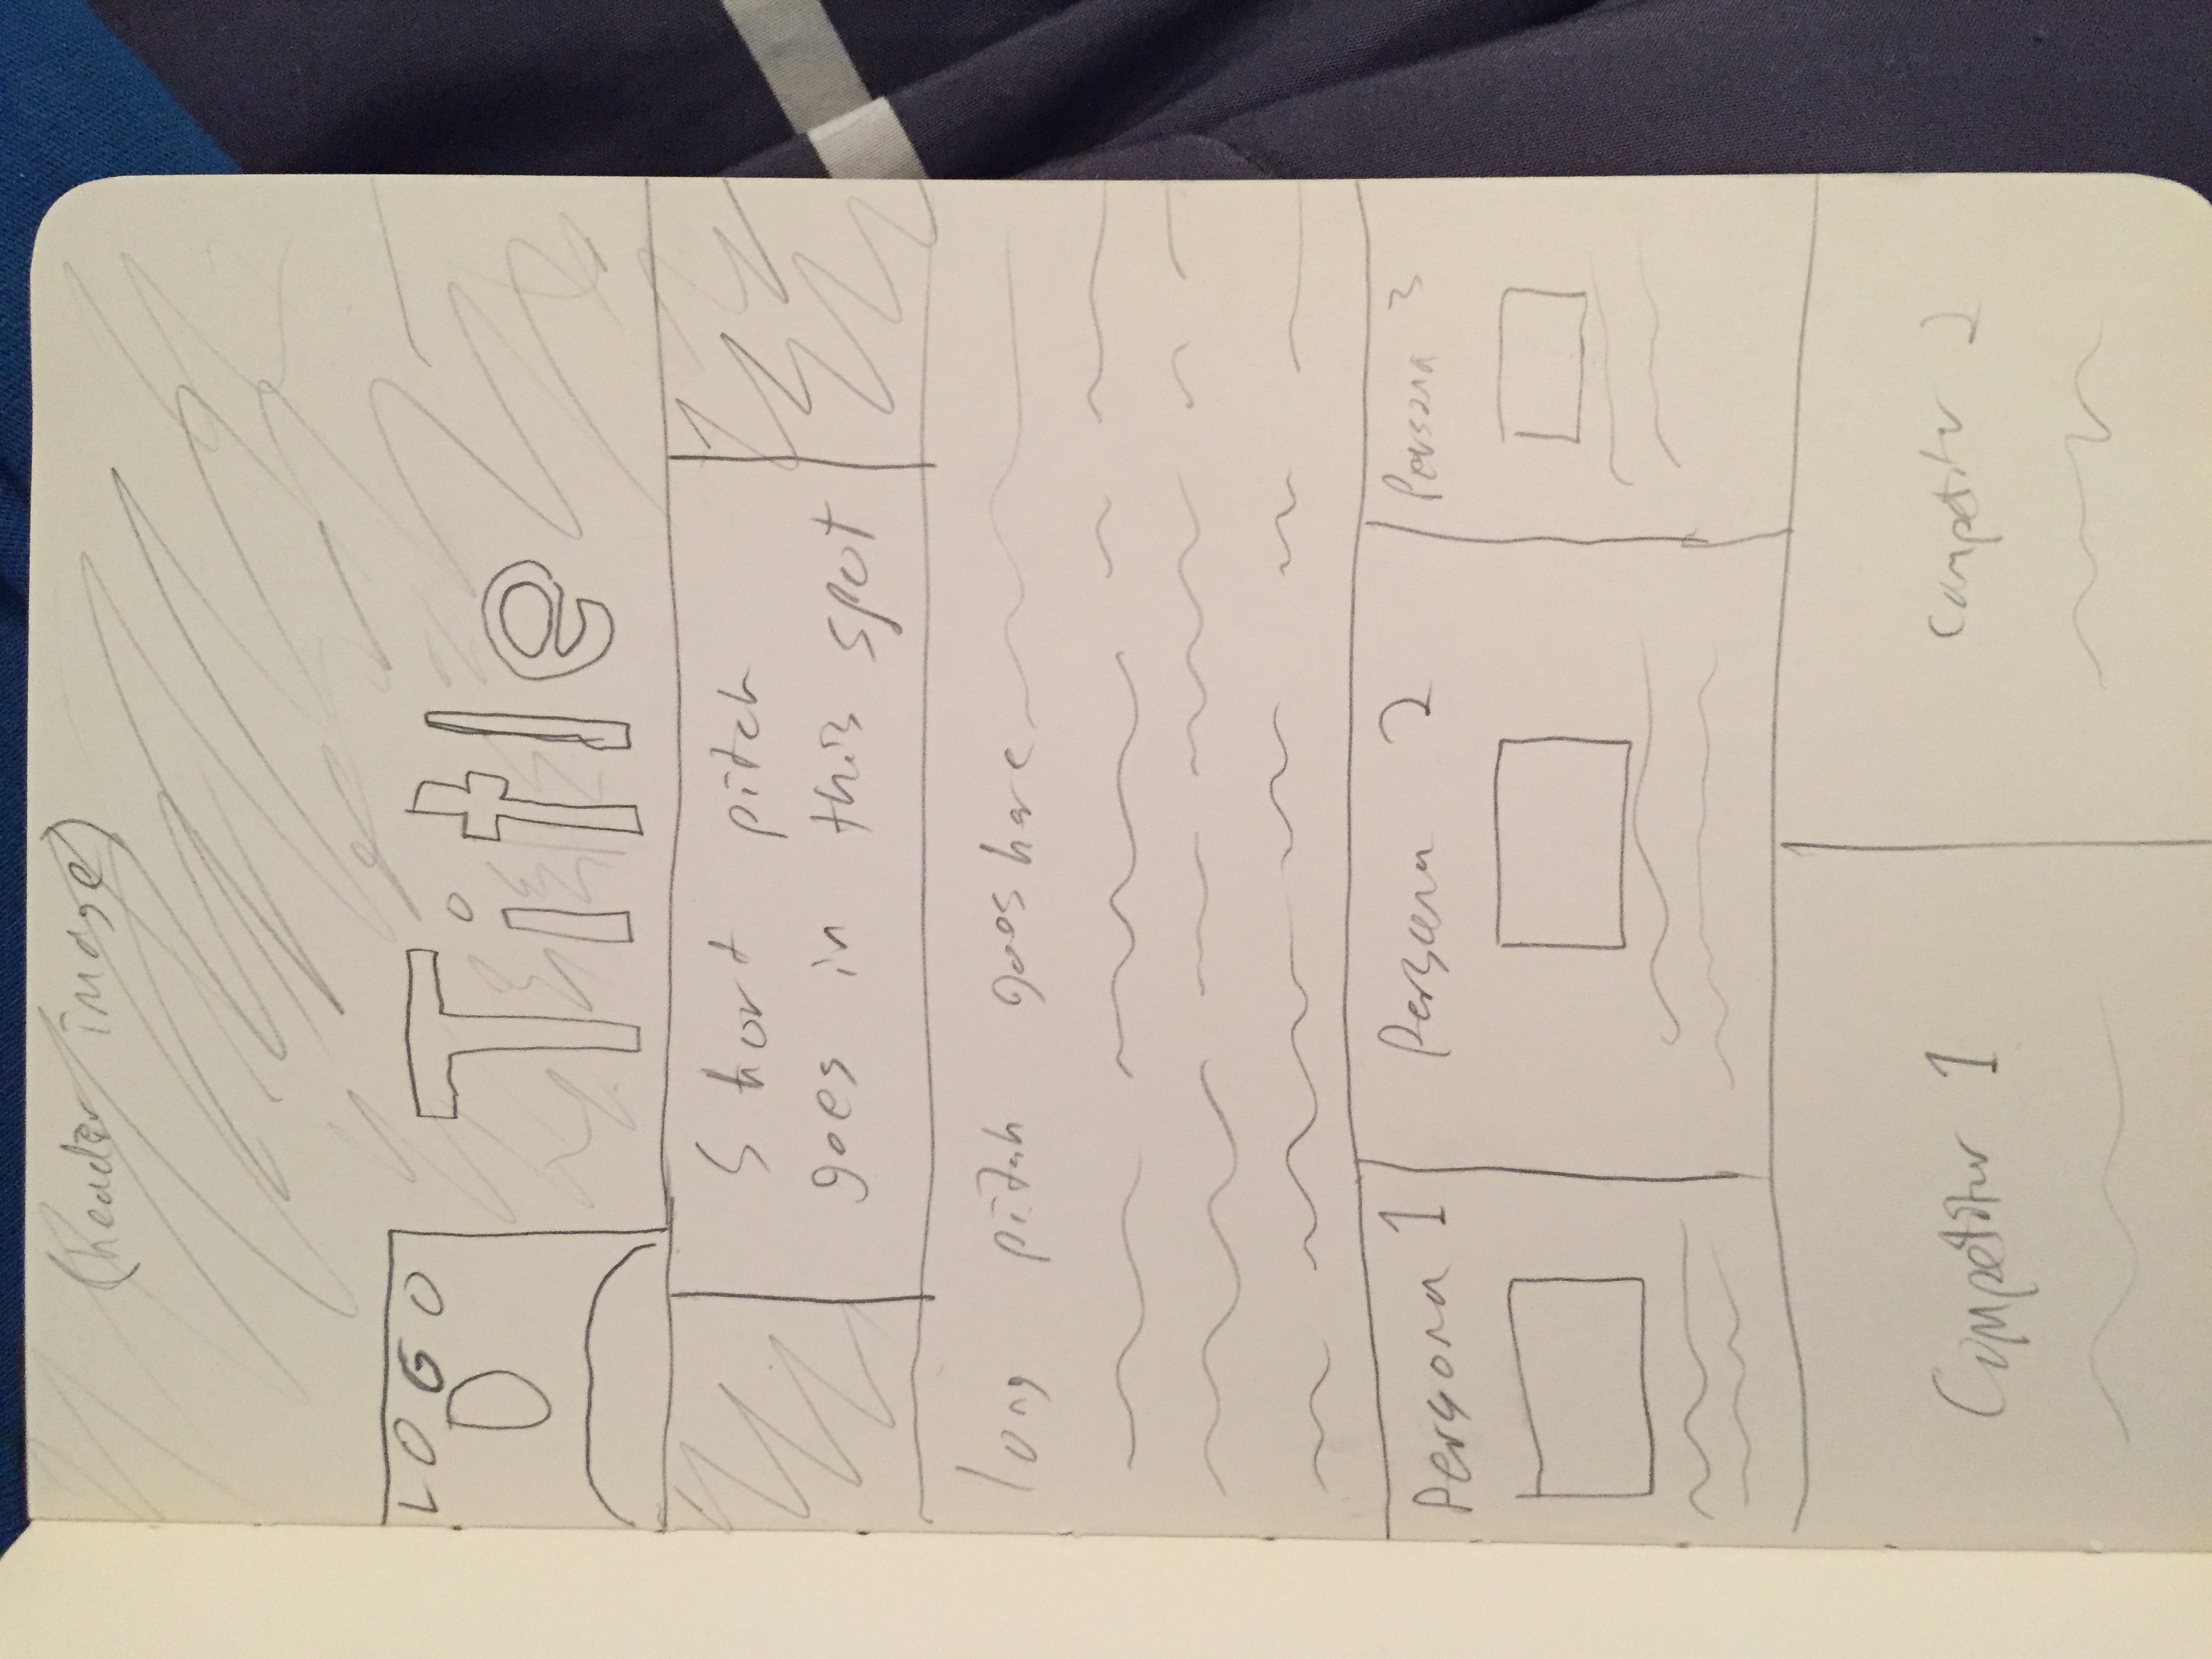 (header image)
LOGO
Title
Short pitch
goes in this spot
long pitch goes here
Persona 1
Persona 2
Persona 3
Competitor 1
Competitor 2